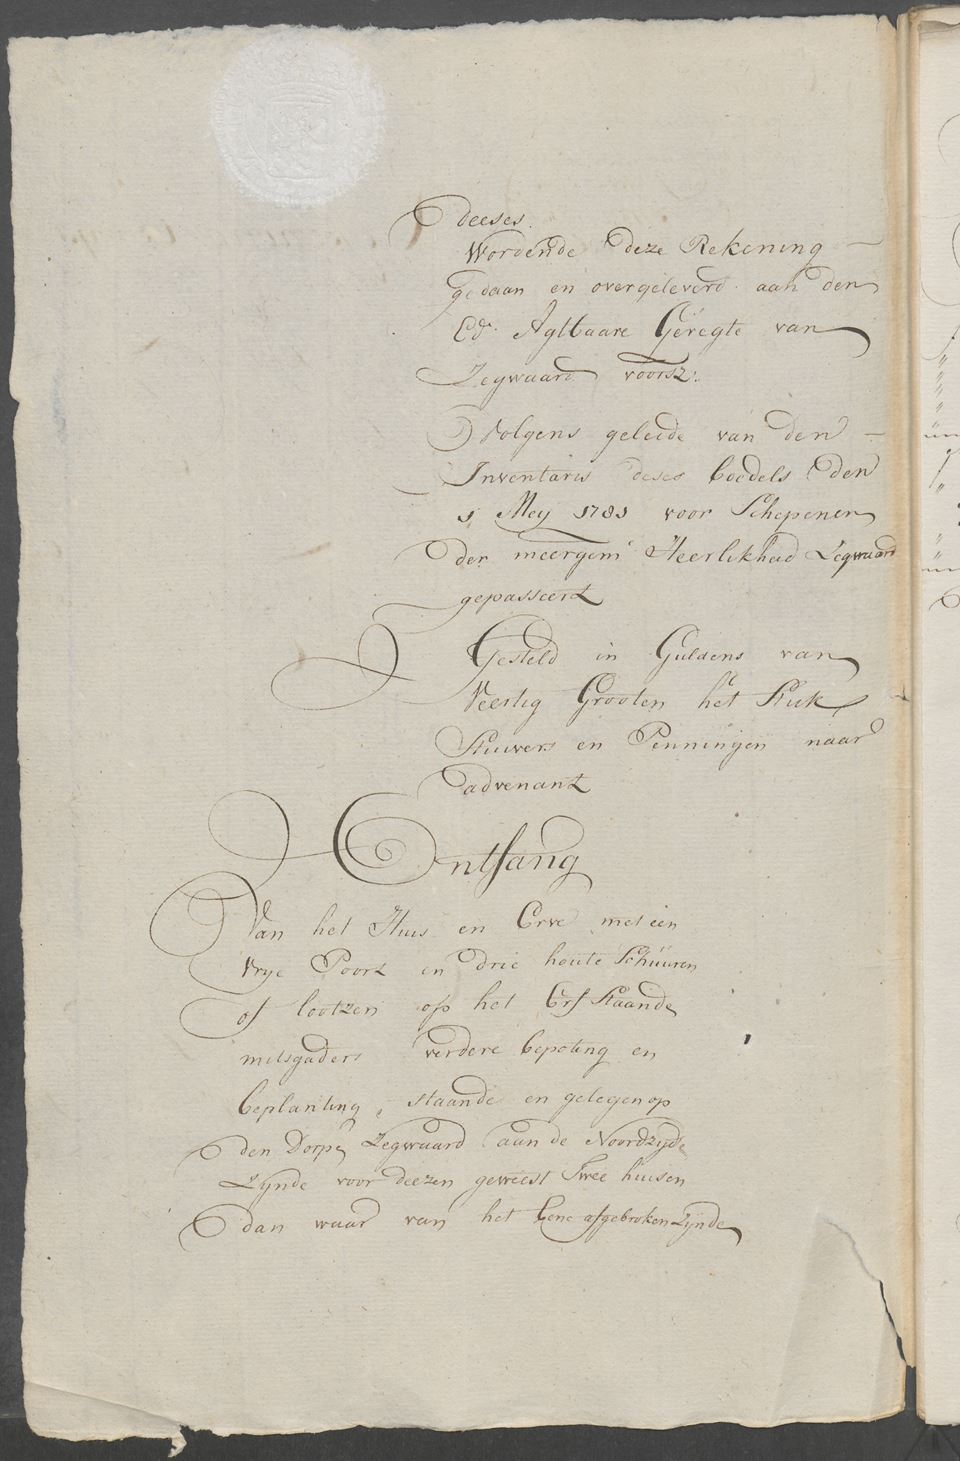 deeses.
Wordende deze Rekening
gedaan en overgeleverd aan den
Ed. Agtbaare Geregte van
Zegwaard voorsz:
Volgens geleide van den
Inventaris deses boedels den
1 Mey 1781 voor Schepenen
der meergem. Heerlikheid Zegwaard
gepasseert
Gesteld in Guldens van
Veertig Grooten het Stuk
Stuivers en Penningen naar
advenant
Ontfang
Van het Huis en Erve met een
Vrye Poort en drie houte Schuuren
of lootzen op het Erf Staande
mitsgaders verdere bepoting en
beplanting, staande en gelegen op
den Dorpe Zegwaard aan de Noordzyde
Zynde voor deezen geweest Twee huisen
dan waar van het Eene afgebroken Zynde